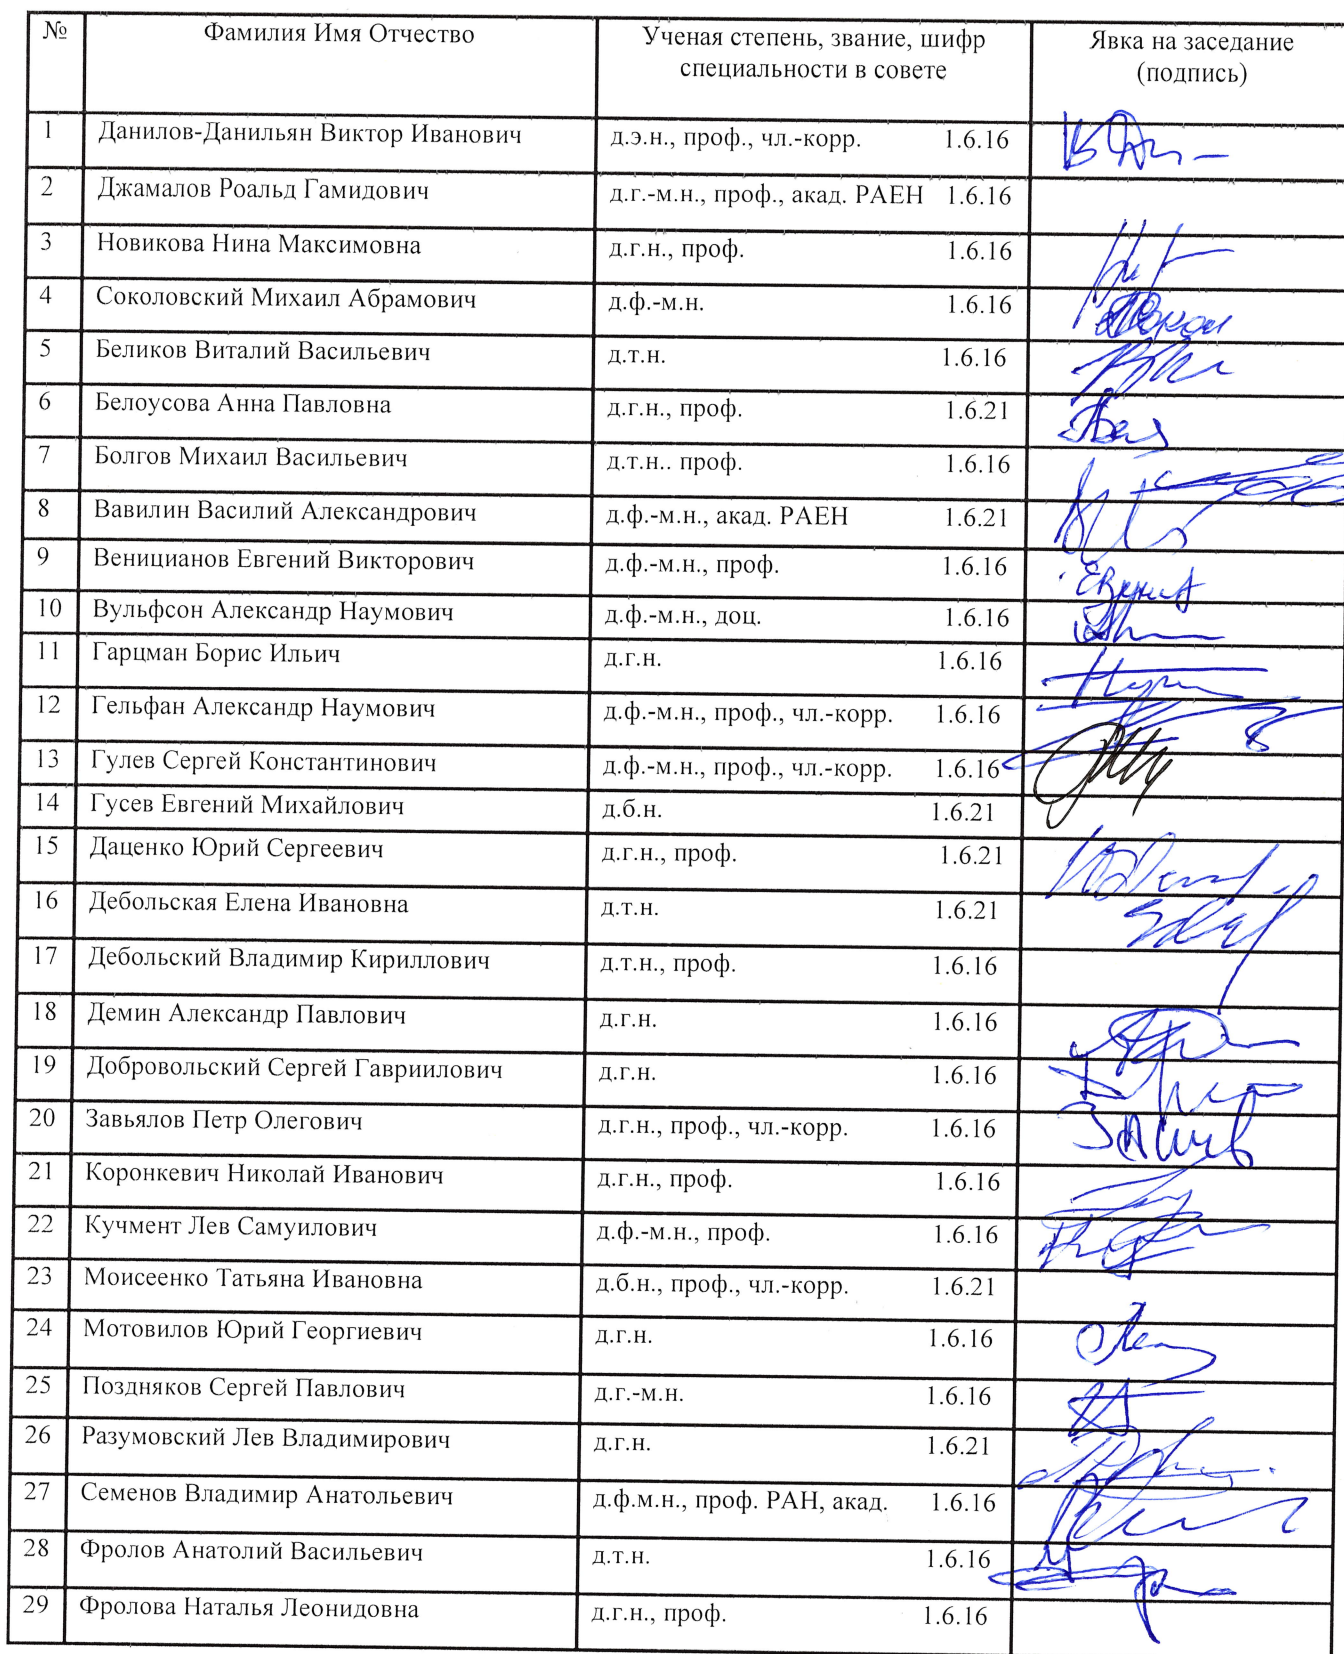 № Фамилия Имя Отчество Ученая степень, звание, шифр Явка на заседание
специальности в совете (подпись)
1 Данилов-Данильян Виктор Иванович д.э.н., проф., чл.-корр. 1.6.16
2 Джамалов Роальд Гамидович д.г.-м.н., проф., акад. РАЕН 1.6.16
3 Новикова Нина Максимовна д.г.н., проф. 1.6.16
4 Соколовский Михаил Абрамович д.ф.-м.н. 1.6.16
5 Беликов Виталий Васильевич д.т.н. 1.6.16
6 Белоусова Анна Павловна д.г.н., проф. 1.6.21
7 Болгов Михаил Васильевич д.т.н.. проф. 1.6.16
8 Вавилин Василий Александрович д.ф.-м.н., акад. РАЕН 1.6.21
9 Веницианов Евгений Викторович д.ф.-м.н., проф. 1.6.16
10 Вульфсон Александр Наумович д.ф.-м.н., доц. 1.6.16
11 Гарцман Борис Ильич д.г.н. 1.6.16
12 Гельфан Александр Наумович д.ф.-м.н., проф., чл.-корр. 1.6.16
13 Гулев Сергей Константинович д.ф.-м.н., проф., чл.-корр. 1.6.16
14 Гусев Евгений Михайлович д.б.н. 1.6.21
15 Даценко Юрий Сергеевич д.г.н., проф. 1.6.21
16 Дебольская Елена Ивановна д.т.н. 1.6.21
17 Дебольский Владимир Кириллович д.т.н., проф. 1.6.16
18 Демин Александр Павлович д.г.н. 1.6.16
19 Добровольский Сергей Гавриилович д.г.н. 1.6.16
20 Завьялов Петр Олегович д.г.н., проф., чл.-корр. 1.6.16
21 Коронкевич Николай Иванович д.г.н., проф. 1.6.16
22 Кучмент Лев Самуилович д.ф.-м.н., проф. 1.6.16
23 Моисеенко Татьяна Ивановна д.б.н., проф., чл.-корр. 1.6.21
24 Мотовилов Юрий Георгиевич д.г.н. 1.6.16
25 Поздняков Сергей Павлович д.г.-м.н. 1.6.16
26 Разумовский Лев Владимирович д.г.н. 1.6.21
27 Семенов Владимир Анатольевич д.ф.м.н., проф. РАН, акад. 1.6.16
28 Фролов Анатолий Васильевич д.т.н. 1.6.16
29 Фролова Наталья Леонидовна д.г.н., проф. 1.6.16